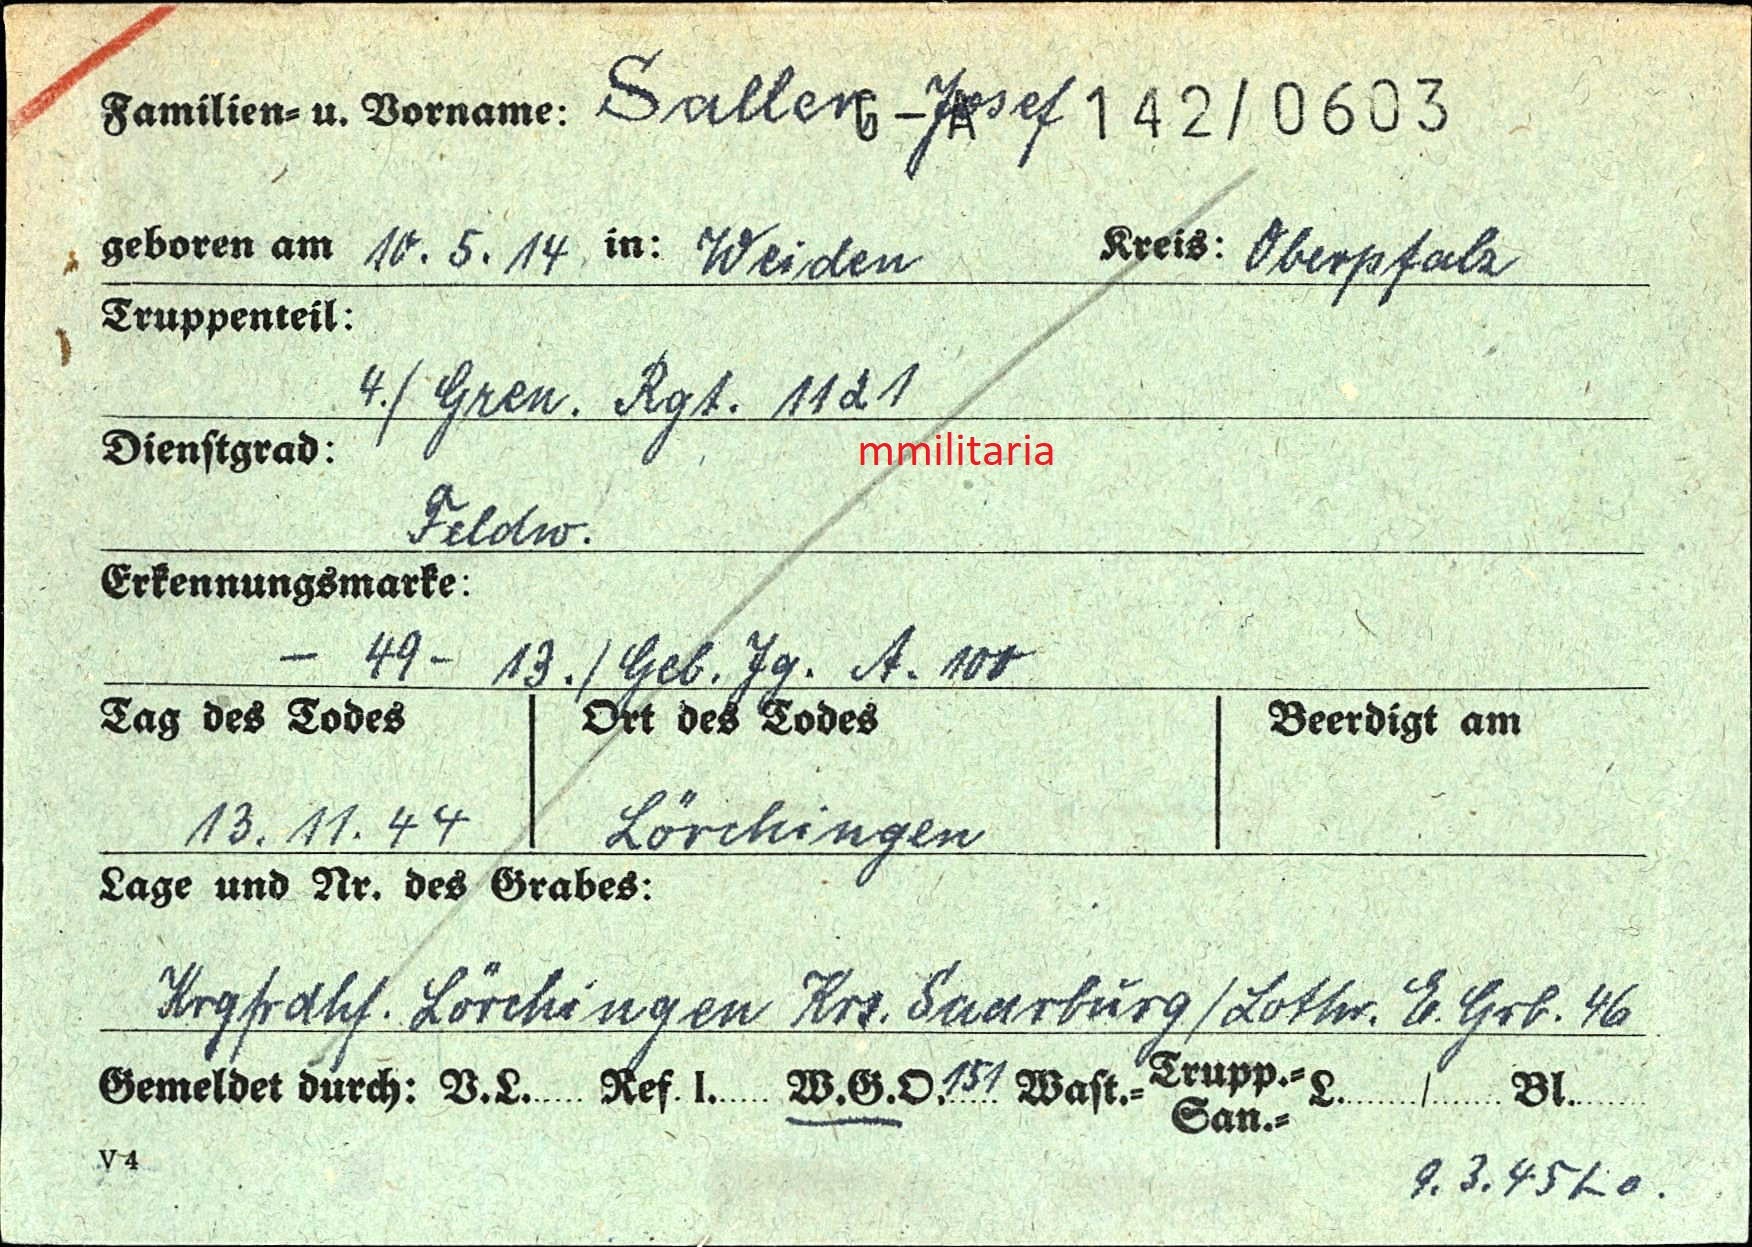 Familien- u. Vorname: Saller, Josef G-A 142/0603
geboren am 10. 5. 14 in: Weiden Kreis: Oberpfalz
Truppenteil:
4./ Gren. Rgt. 1121
Dienstgrad:
mmilitaria
Feldw.
Erkennungsmarke:
- 49 - 13./ Geb. Jg. A. 100
Tag des Todes Ort des Todes Beerdigt am
13. 11. 44 Lörchingen
Lage und Nr. des Grabes:
Krgfrdhf. Lörchingen Krs. Saarburg/Lothr. E. Grb. 46
Gemeldet durch: V.L..... Ref. I..... W.G.O. 151 Wast.- Trupp.- San.- L......../....... Bl.......
V 4
9. 3. 45 Lo.